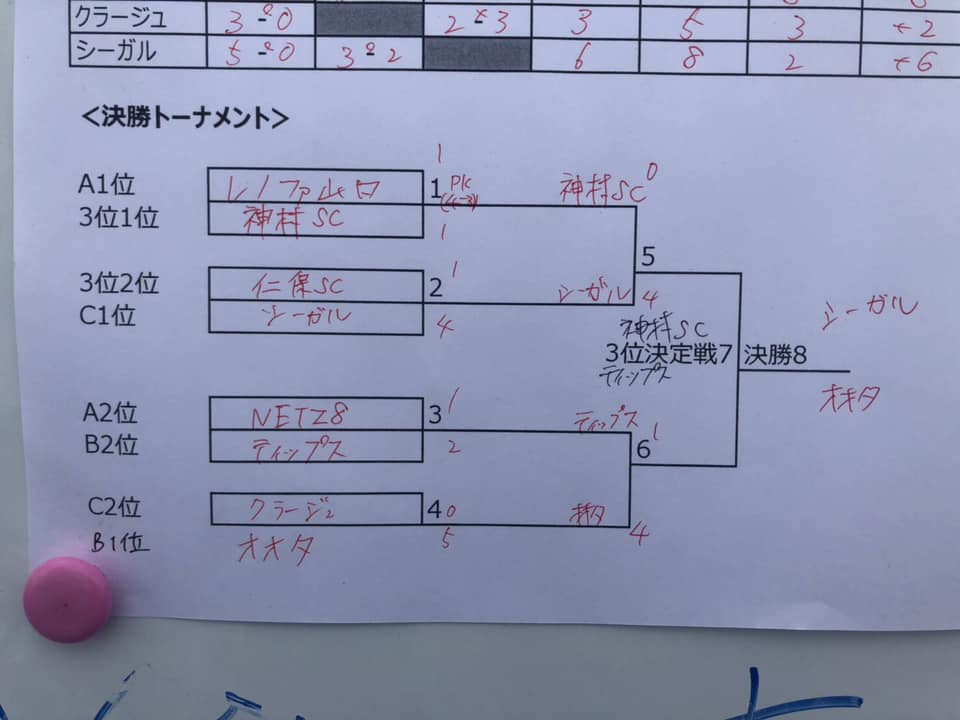 クラージュ 3-0 2-3 3 5 3 +2
シーガル 5-0 3-2 6 8 2 +6
<決勝トーナメント>
1
A1位 レノファ山口 1 PK 神村SC 0
3位1位 神村SC 1
5
3位2位 仁保SC 2 1
C1位 シーガル 4 シーガル 4
神村SC シーガル
3位決定戦7 決勝8
ティップス
オオタ
A2位 NETZ8 3 1 ティップス
B2位 ティップス 2 6 1
C2位 クラージュ 4 0 4
B1位 オオタ 5